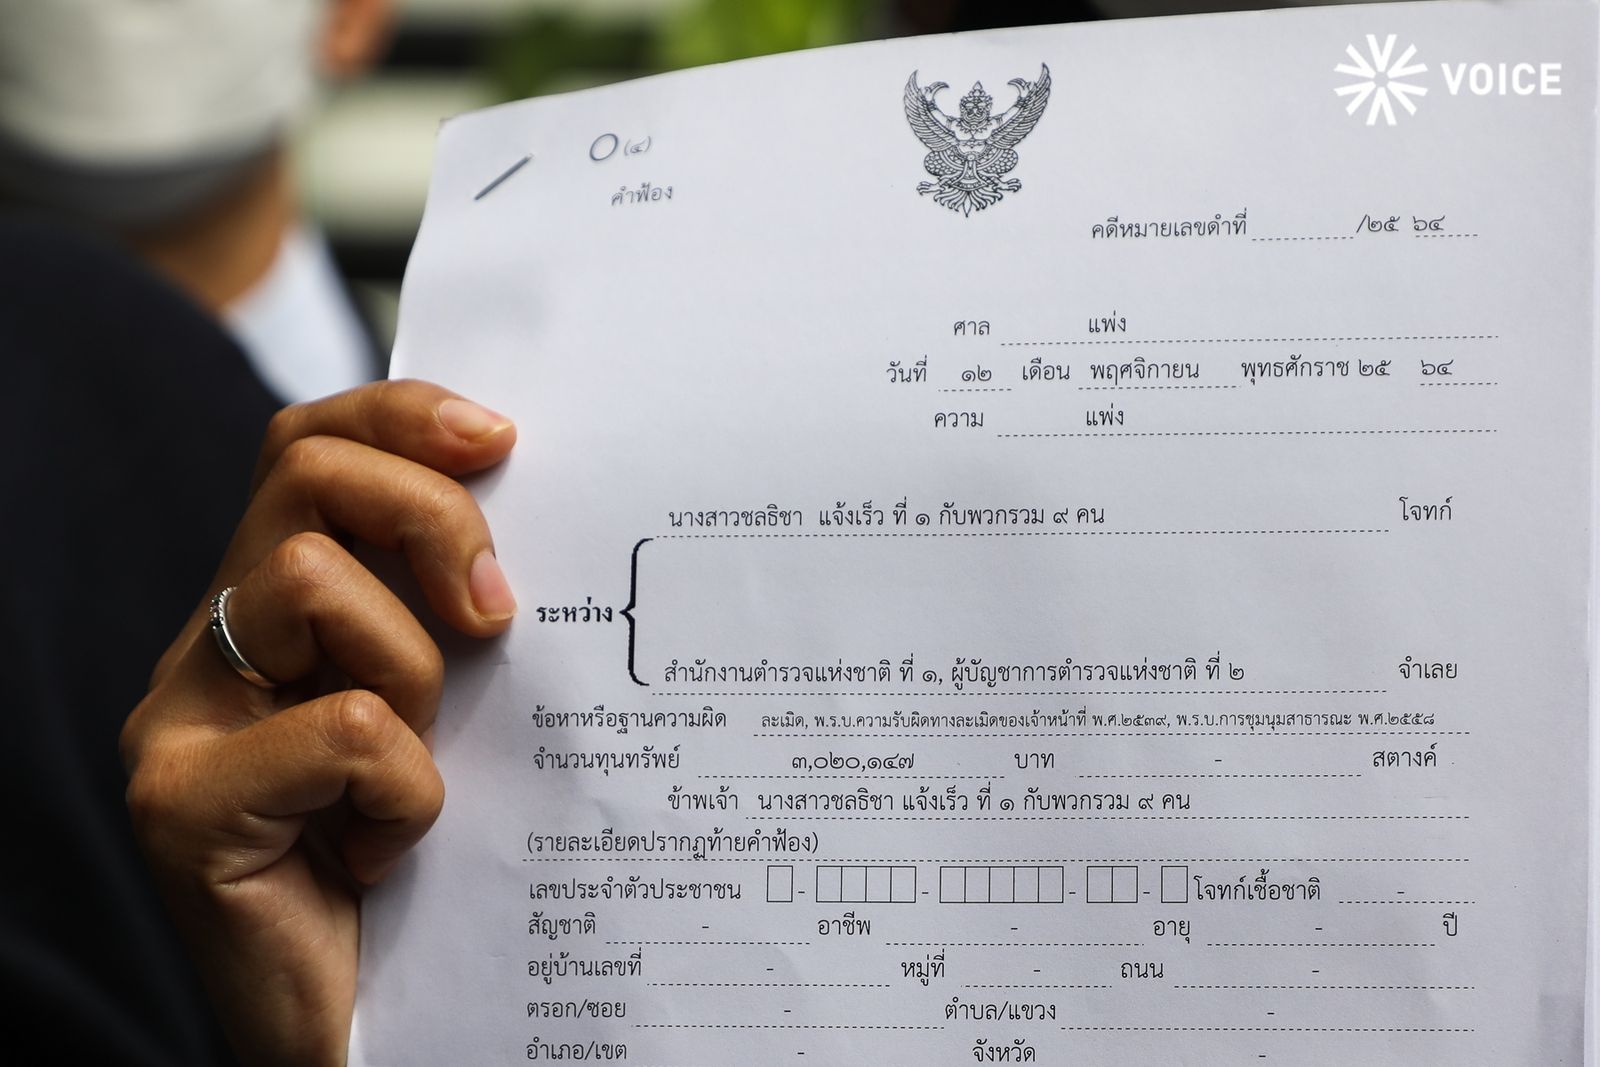 VOICE
○ (๔)
คำฟ้อง
คดีหมายเลขดำที่ /๒๕ ๖๔
ศาล แพ่ง
วันที่ ๑๒ เดือน พฤศจิกายน พุทธศักราช ๒๕ ๖๔
ความ แพ่ง
นางสาวชลธิชา แจ้งเร็ว ที่ ๑ กับพวกรวม ๙ คน โจทก์
ระหว่าง
สำนักงานตำรวจแห่งชาติ ที่ ๑, ผู้บัญชาการตำรวจแห่งชาติ ที่ ๒ จำเลย
ข้อหาหรือฐานความผิด ละเมิด, พ.ร.บ.ความรับผิดทางละเมิดของเจ้าหน้าที่ พ.ศ.๒๕๓๙, พ.ร.บ.การชุมนุมสาธารณะ พ.ศ.๒๕๕๘
จำนวนทุนทรัพย์ ๓,๐๒๐,๑๔๗ บาท - สตางค์
ข้าพเจ้า นางสาวชลธิชา แจ้งเร็ว ที่ ๑ กับพวกรวม ๙ คน
(รายละเอียดปรากฏท้ายคำฟ้อง)
เลขประจำตัวประชาชน - - - - โจทก์เชื้อชาติ -
สัญชาติ - อาชีพ - อายุ - ปี
อยู่บ้านเลขที่ - หมู่ที่ - ถนน -
ตรอก/ซอย - ตำบล/แขวง -
อำเภอ/เขต - จังหวัด -